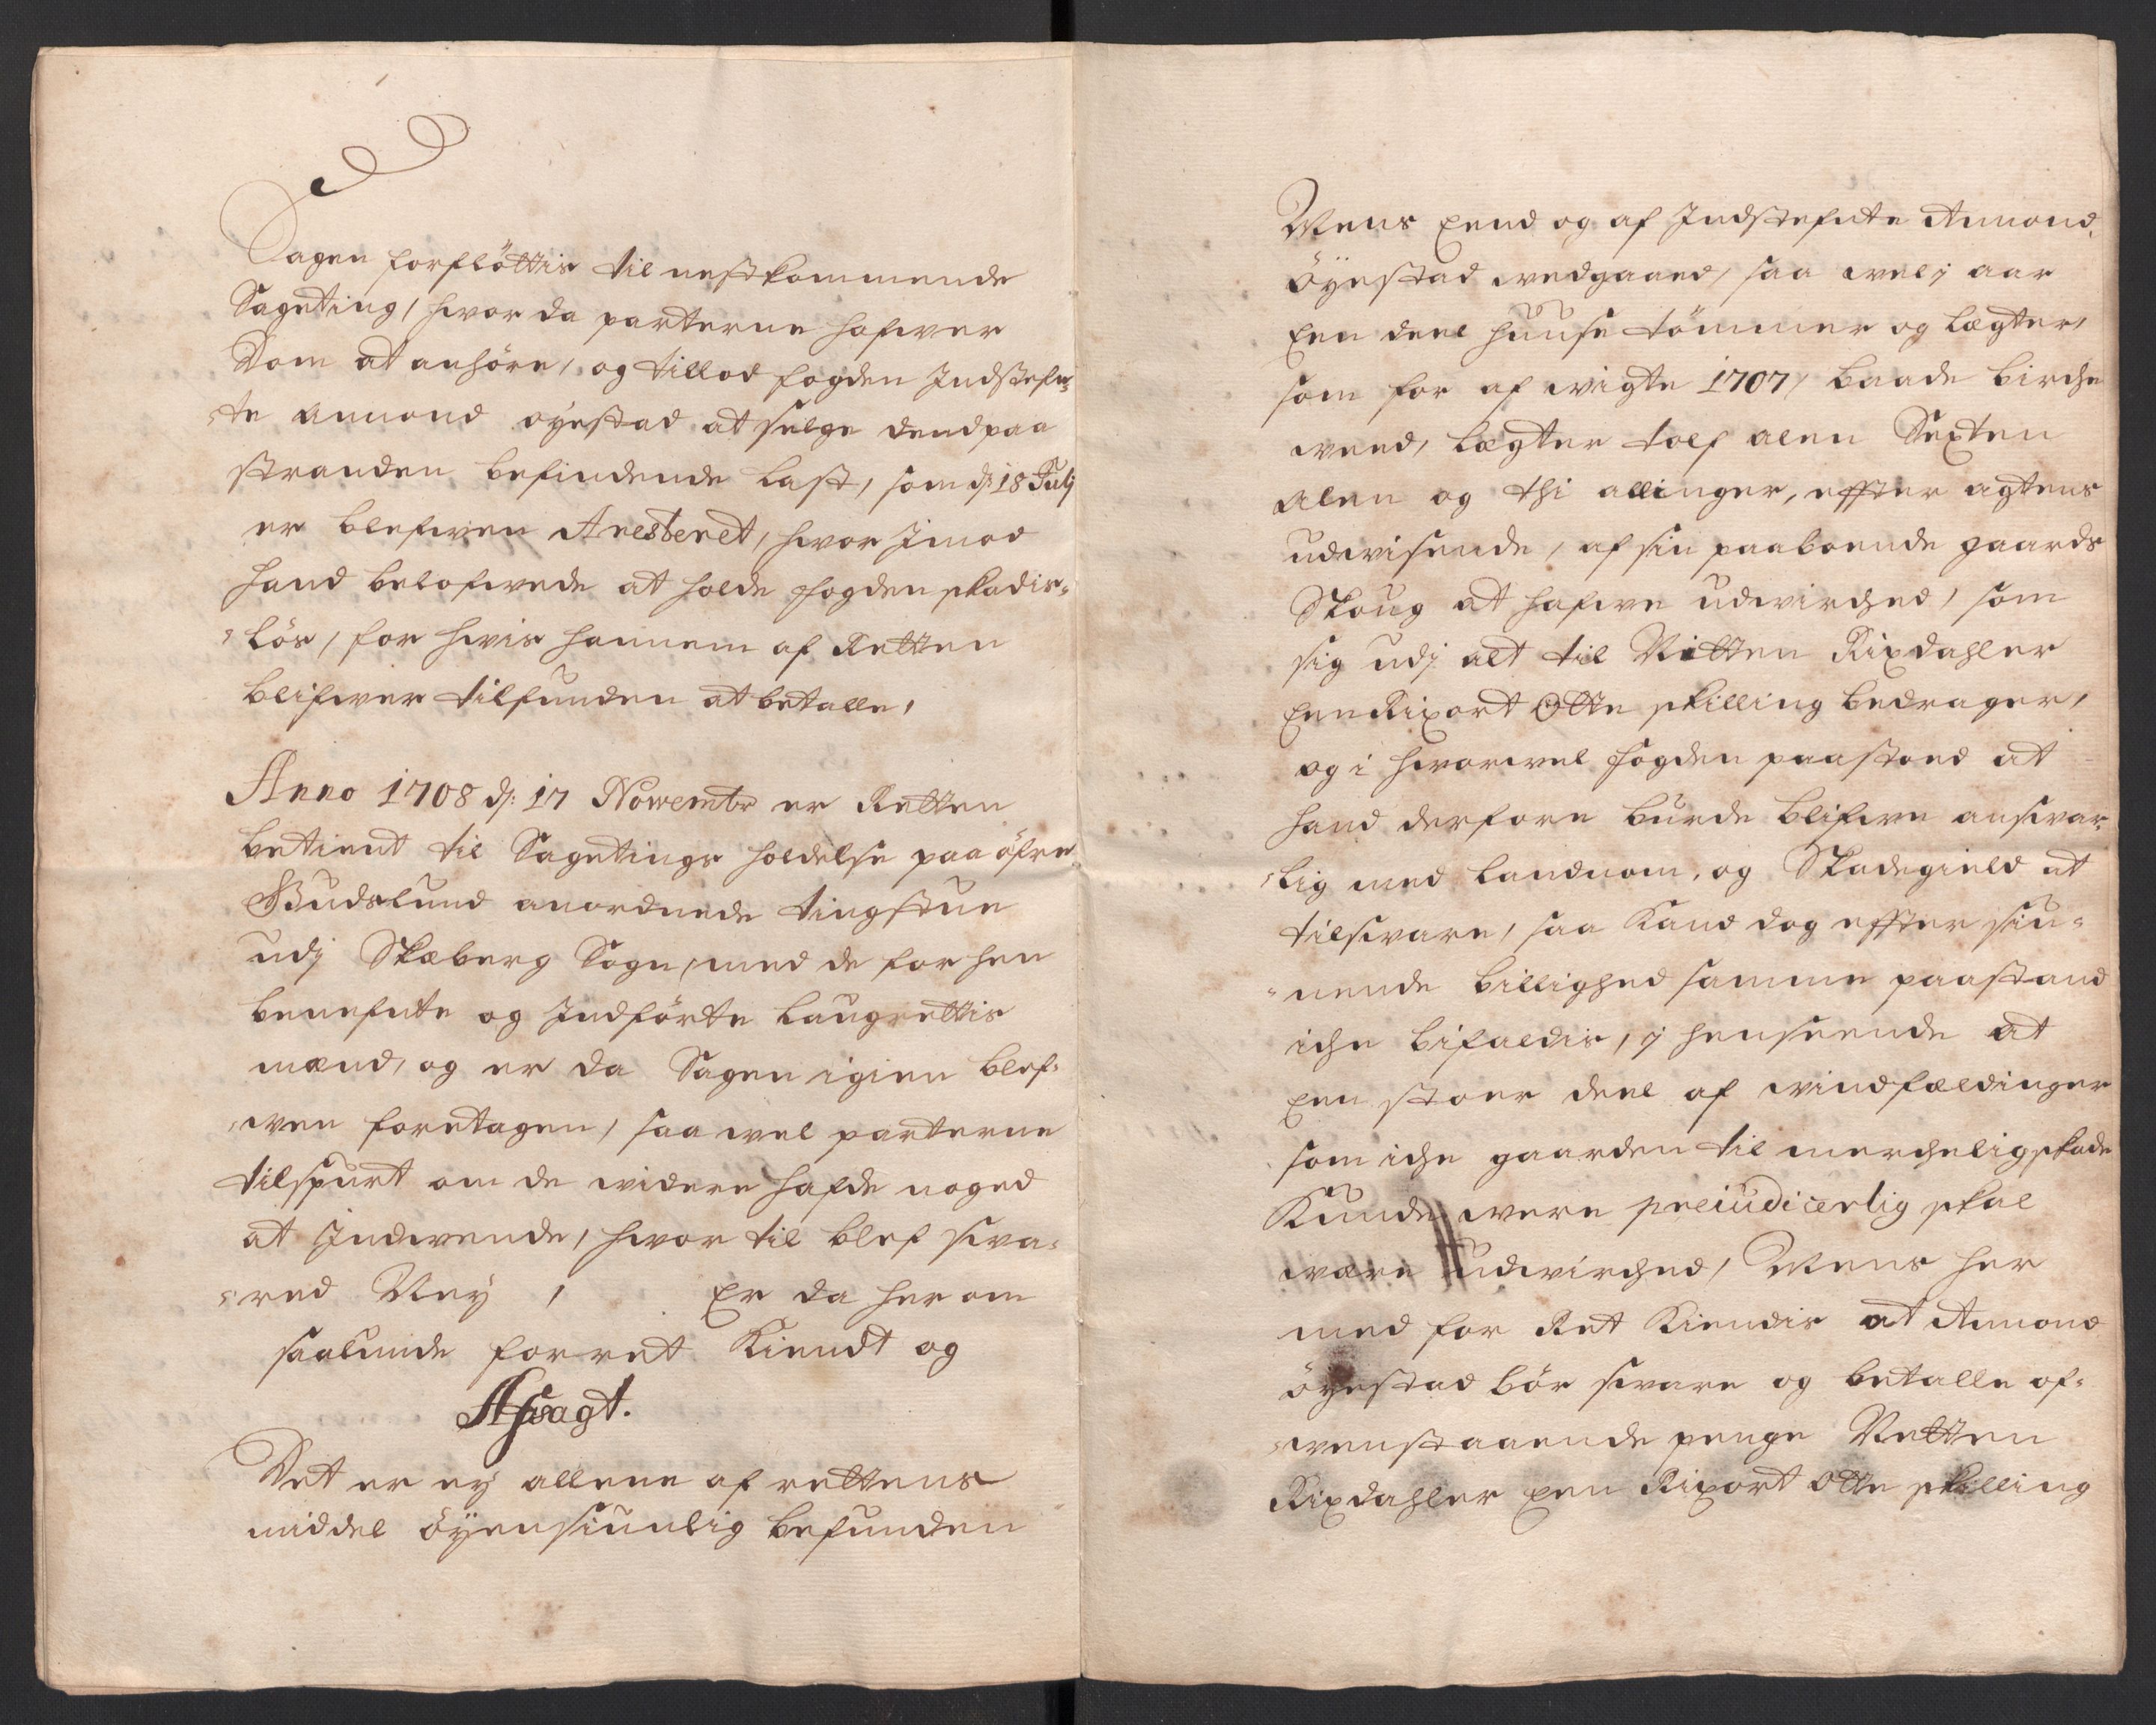 Sagen forflöttis til nestkommende
Sageting, hvor da parterne hafwer
Dom at anhöre, og tillod fogden Indstefn¬
¬te Amond oyestad at selge dend paa
stranden befindende last, som d: 18 Julj
er blefwen Aresteret, hvor Imod
hand belofwede at holde fogden skadis¬
¬lös, for hvis hannem af Retten
blifwer tilfunden at betalle,
Anno 1708 d: 17 Nowembr er Retten
betient til Sagetings holdelse paa öfre
Gudslund anordnede tingstue
udj Skæberg Sogn, med de for hen
benefnte og Indförte laugrettis
mænd, og er da Sagen igien blef¬
¬wen foretagen, saa wel parterne
tilspurt om de widere hafde noged
at Indwende, hvor til blef swa¬
¬red Ney, Er da her om
saalunde for ret Kiendt og
Afsagt.
Det er ey allene af rettens
middel öyensiunlig befunden
Mens End og af Indstefnte Amond
Öyestad wedgaaed, saa wel j aar
Een deel huuse tömmer og lægter,
som for af wigte 1707, baade birche
weed, lægter tolf alen Sexten
alen og thi allinger, effter agtens
udwisende, af sin paaboende gaards
Skoug at hafwe udwirched, som
sig udj alt til Nitten Rixdahler
Een Rixort Otte skilling bedrager,
og i hvorwel fogden paastoed at
hand derfore burde blifwe answar¬
¬lig med landnom, og Skadegield at
tilsware, saa Kand dog effter siu¬
¬nende billighed samme paastand
iche bifaldis, j henseende at
Een stoer deel af windfældinger
som iche gaarden til mercheligskade
Kunde were preiudicerlig skal
wære udwirched, Mens her
med for Ret Kiendis at Amond
öyestad bör sware og betalle of¬
¬wenstaaende penge Netten
Rixdahler Een Rixort Otte skilling